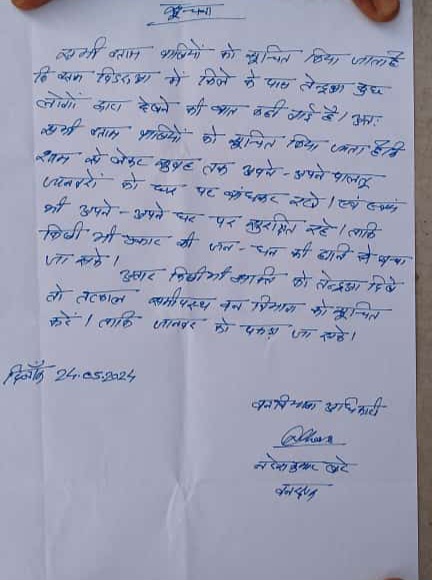 सूचना
सभी ग्राम वासियों को सूचित किया जाता है
कि ग्राम में किले के पास तेन्दुआ कुछ
लोगों द्वारा देखने की बात कही गई है। अतः
सभी ग्राम वासियों को सूचित किया जाता है कि
शाम से लेकर सुबह तक अपने-अपने पालतू
जानवरों को घर पर बांधकर रखे। एवं स्वयं
भी अपने-अपने घर पर सुरक्षित रहे। ताकि
किसी भी प्रकार की जन-धन की हानि से बचा
जा सके।
अगर किसी भी व्यक्ति को तेन्दुआ दिखे
तो तत्काल समीपस्थ वन विभाग को सूचित
करें। ताकि जानवर को पकड़ा जा सके।
दिनाँक 24.05.2024
वनविभाग अधिकारी
नरेशकुमार
वनरक्षक